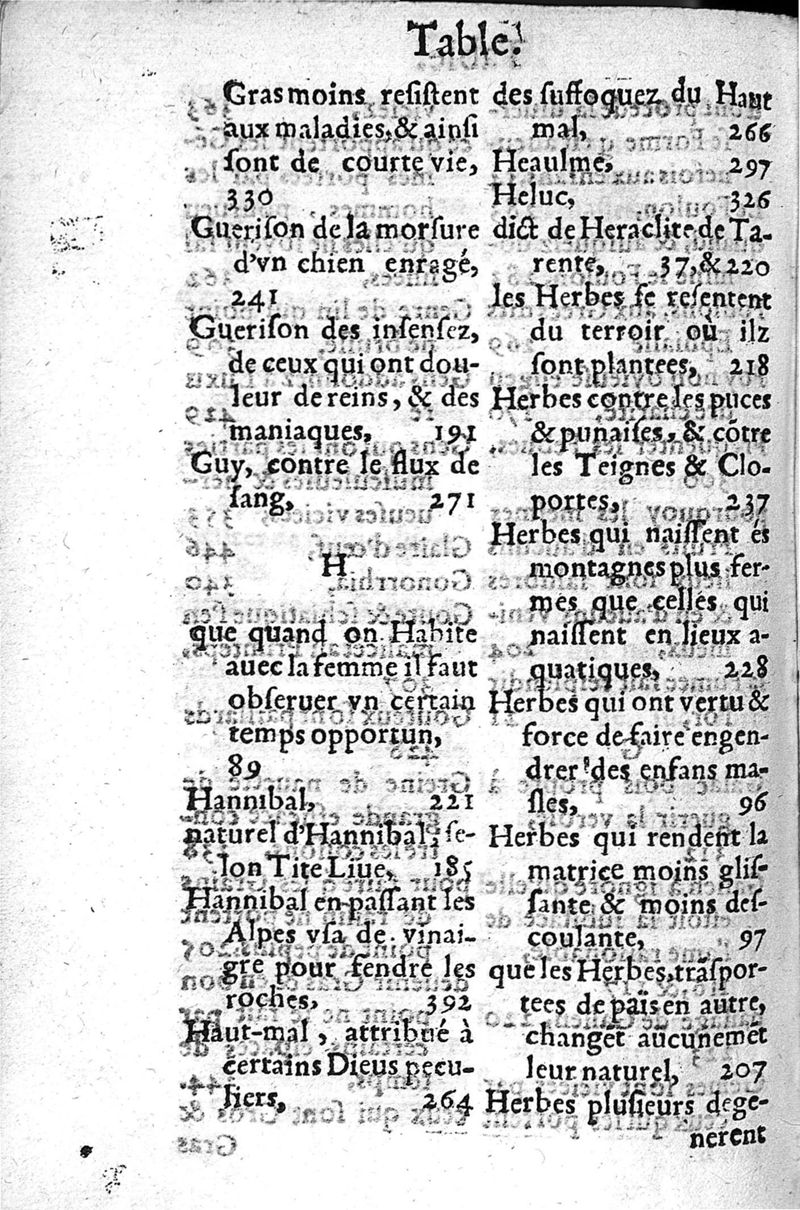 Table.
Gras moins resistent
aux maladies, & ainsi
sont de courte vie,
330
Guerison de la morsure
d'vn chien enragé,
241
Guerison des insensez,
de ceux qui ont dou-
leur de reins, & des
maniaques, 191
Guy, contre le flux de
sang, 271
H
que quand on Habite
auec la femme il faut
obseruer vn certain
temps opportun,
89
Hannibal, 221
naturel d'Hannibal, se-
lon Tite Liue, 185
Hannibal en passant les
Alpes vsa de vinai-
gre pour fendre les
roches, 392
Haut-mal, attribué à
certains Dieus pecu-
liers, 264
des suffoquez du Haut
mal, 266
Heaulme, 297
Heluc, 326
dict de Heraclite de Ta-
rente, 37, & 220
les Herbes se resentent
du terroir où ilz
sont plantees, 218
Herbes contre les puces
& punaises, & cõtre
les Teignes & Clo-
portes, 237
Herbes qui naissent és
montagnes plus fer-
mes que celles qui
naissent en lieux a-
quatiques, 228
Herbes qui ont vertu &
force de faire engen-
drer des enfans ma-
sles, 96
Herbes qui rendent la
matrice moins glis-
sante & moins des-
coulante, 97
que les Herbes, trãspor-
tees de païs en autre,
changẽt aucunemẽt
leur naturel, 207
Herbes plusieurs dege-
nerent